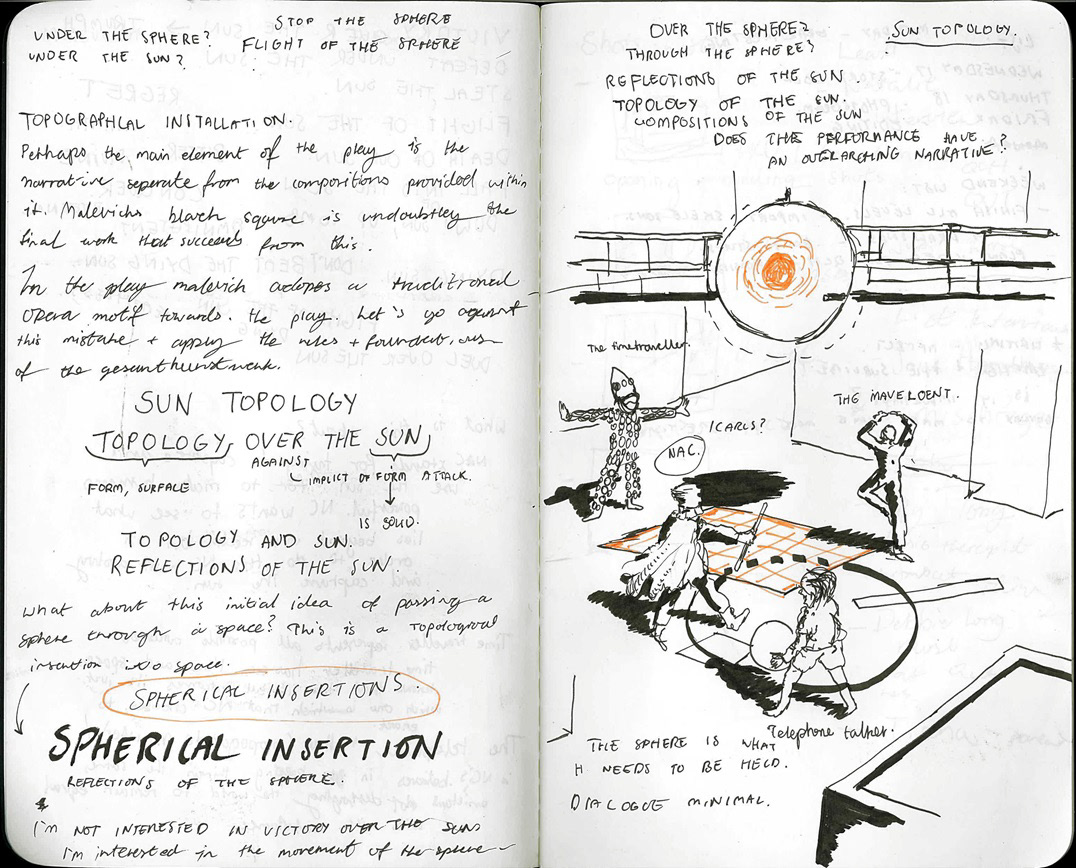 UNDER THE SPHERE?
UNDER THE SUN?
STOP THE SPHERE
FLIGHT OF THE SPHERE
TOPOGRAPHICAL INSTALLATION.
Perhaps the main element of the play is the
narrative seperate from the compositions provided within
it. Malevichs black square is undoubtley the
final work that succeeds from this.
In the play malevich adopes a traditional
opera motif towards. the play. Let's go against
this mistake + apply the rules + foundations
of the gesamtkunstwerk.
SUN TOPOLOGY
TOPOLOGY, OVER THE SUN
AGAINST
FORM, SURFACE
IMPLICT OF FORM ATTACK.
IS SOLID.
TOPOLOGY AND SUN.
REFLECTIONS OF THE SUN.
what about this initial idea of passing a
sphere through a space? This is a Topological
insertion into space.
SPHERICAL INSERTIONS.
SPHERICAL INSERTION
REFLECTIONS OF THE SPHERE.
I'm NOT INTERESTED IN VICTORY OVER THE SUN
I'm interested in the movement of the sphere
OVER THE SPHERE?
THROUGH THE SPHERE?
SUN TOPOLOGY.
REFLECTIONS OF THE SUN
TOPOLOGY OF THE SUN.
COMPOSITIONS OF THE SUN
DOES THIS PERFORMANCE HAVE?
AN OVERARCHING NARRATIVE?
The timetraveller.
THE MAVELOENT.
ICARUS?
NAC.
Telephone talker.
THE SPHERE IS WHAT
NEEDS TO BE HELD.
DIALOGUE MINIMAL.